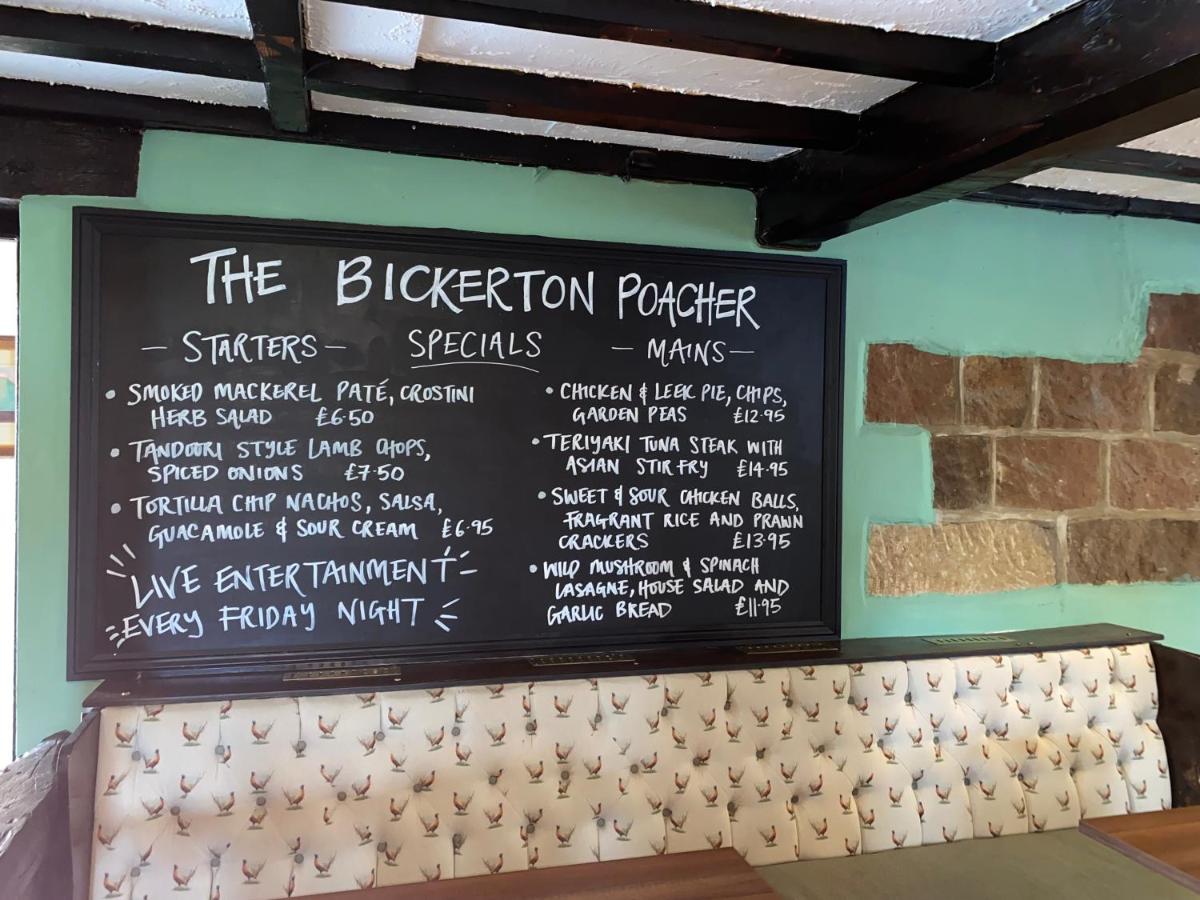 THE BICKERTON POACHER
SPECIALS
- STARTERS -
• SMOKED MACKEREL PATÉ, CROSTINI
HERB SALAD £6.50
• TANDOORI STYLE LAMB CHOPS,
SPICED ONIONS £7.50
• TORTILLA CHIP NACHOS, SALSA,
GUACAMOLE & SOUR CREAM £6.95
LIVE ENTERTAINMENT
EVERY FRIDAY NIGHT
- MAINS -
• CHICKEN & LEEK PIE, CHIPS,
GARDEN PEAS £12.95
• TERIYAKI TUNA STEAK WITH
ASIAN STIR FRY £14.95
• SWEET & SOUR CHICKEN BALLS,
FRAGRANT RICE AND PRAWN
CRACKERS £13.95
• WILD MUSHROOM & SPINACH
LASAGNE, HOUSE SALAD AND
GARLIC BREAD £11.95